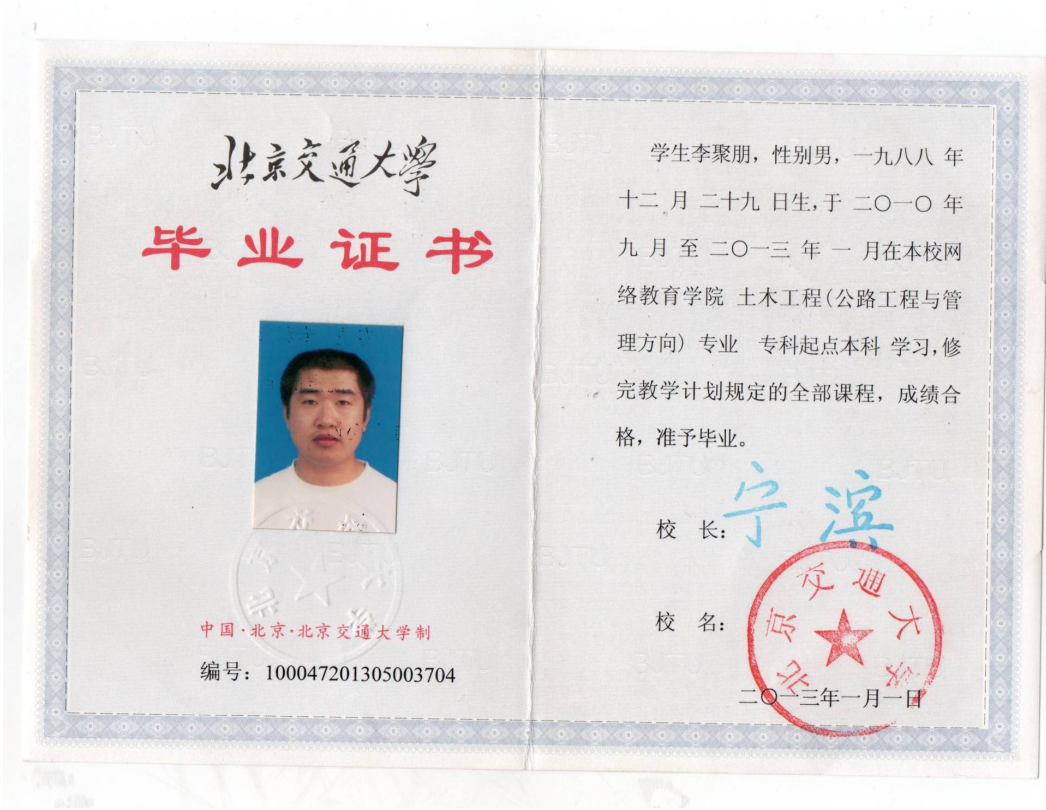 北京交通大學
毕业证书
中国·北京·北京交通大学制
编号：100047201305003704
学生李聚朋，性别男，一九八八 年
十二 月 二十九 日生,于 二〇一〇 年
九 月 至 二〇一三 年 一 月在本校网
络教育学院 土木工程(公路工程与管
理方向) 专业 专科起点本科 学习,修
完教学计划规定的全部课程，成绩合
格，准予毕业。
校 长：宁滨
校 名：
北京交通大学
二〇一三年一月一日
BJTU